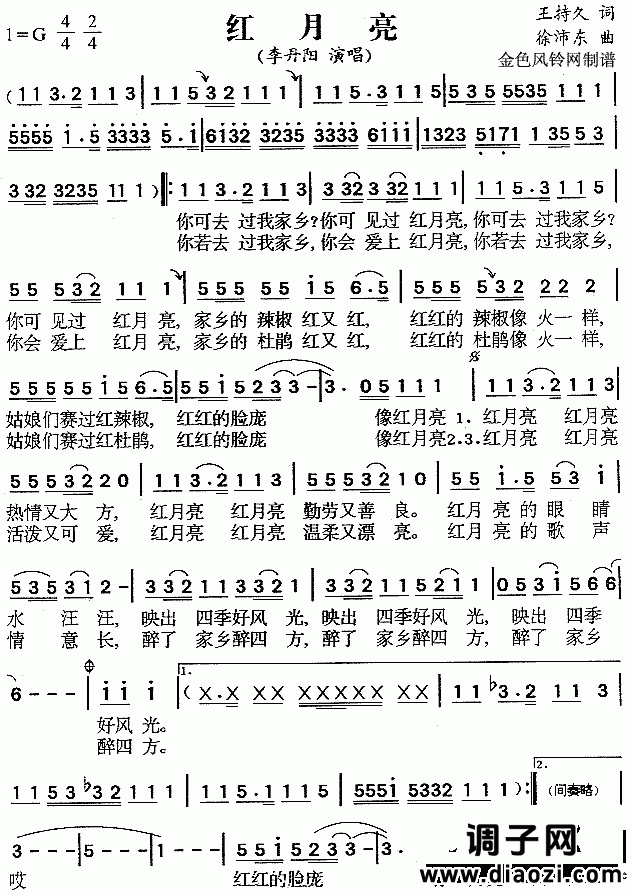 1=G 4/4 2/4 红月亮 王持久 词
(李丹阳 演唱) 徐沛东 曲
金色风铃网制谱
(1 1 3·2 1 1 3 | 1 1 5 3 2 1 1 1 | 1 1 5·3 1 1 5 | 5 3 5 5535 1 1 1 |
5555 i·5 3333 5·i | 6132 3235 3333 6111 | 1323 5171 1 3 5 5 3 |
3 32 3235 11 1 ) ‖: 1 1 3·2 1 1 3 | 3 3 2 3 2 1 1 1 | 1 1 5·3 1 1 5 |
你可去 过我家乡?你可 见过 红月亮,你可去 过我家乡?
你若去 过我家乡,你会 爱上 红月亮,你若去 过我家乡,
5 5 5 3 2 1 1 1 | 5 5 5 5 5 i 5 6·5 | 5 5 5 5 3 2 2 2 2 |
你可 见过 红月 亮,家乡的 辣椒 红又 红, 红红的 辣椒像 火一样,
你会 爱上 红月 亮,家乡的 杜鹃 红又 红, 红红的 杜鹃像 火一样,
5 5 5 5 5 i 5 6·5 | 5 5 i 5 2 3 3 3 - | 3· 0 5 1 1 1 | 1 1 3·2 1 1 3 |
姑娘们赛过红辣椒, 红红的脸庞 像红月亮 1. 红月亮 红月亮
姑娘们赛过红杜鹃, 红红的脸庞 像红月亮2.3.红月亮 红月亮
5 5 5 3 2 3 2 0 | 1 1 3·2 1 1 3 | 5 5 5 3 2 1 0 | 5 5 i·5 5 3 i |
热情又大 方, 红月亮 红月亮 勤劳又善 良。 红月亮 的 眼 睛
活泼又可 爱, 红月亮 红月亮 温柔又漂 亮。 红月亮 的 歌 声
水 汪 汪, 映出 四季好风 光,映出 四季好风 光, 映出 四季
情 意 长, 醉了 家乡醉四 方,醉了 家乡醉四 方, 醉了 家乡
6 - - - | i i i | 1. ( X·X X X X X X X X X X | 1 1 ♭3·2 1 1 3 |
好风 光。
醉四 方。
1 1 5 3 ♭3 2 1 1 1 | 1 1 5·1 1 1 5 | 555i 5332 1 1 1 ) :‖ 2. (间奏略)
3 - - - | 5 - - 1 | 1 - - - | 5 5 i 5 2 3
哎 红红的脸庞
调子网
www.diaozi.com